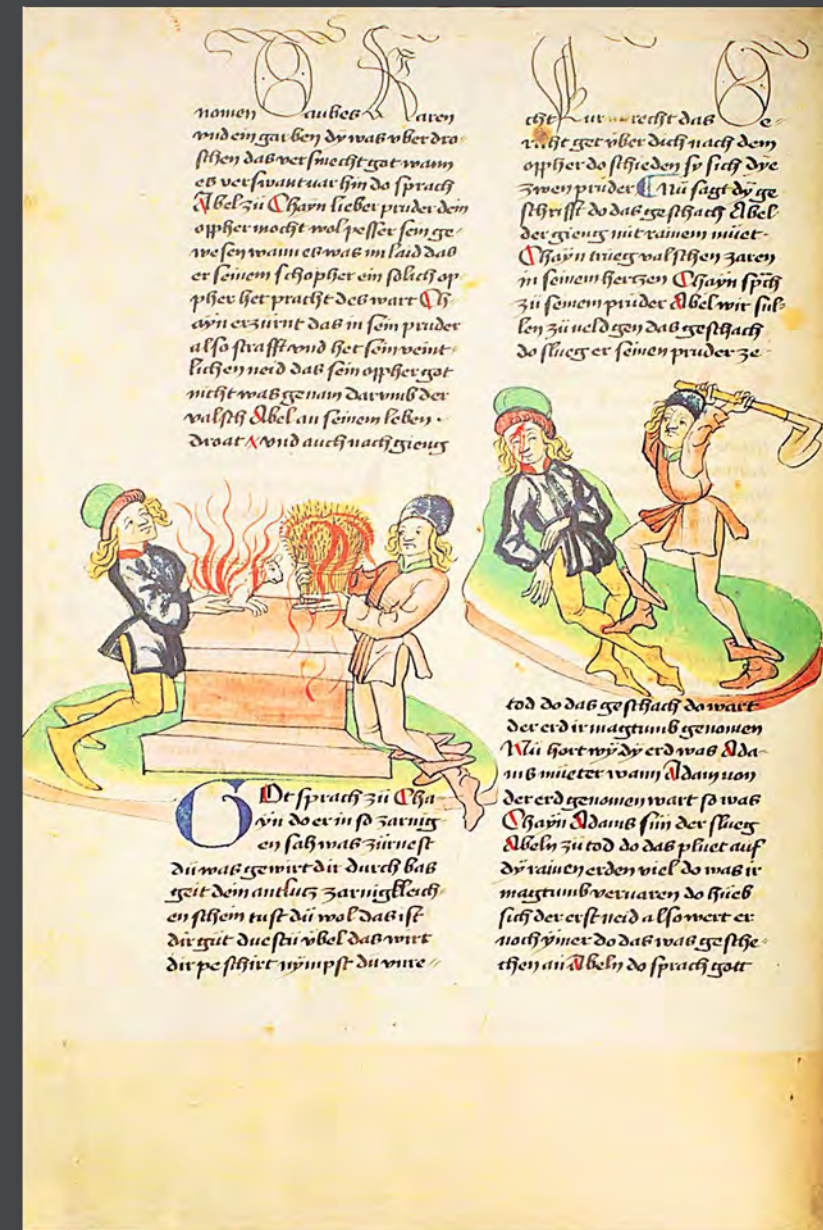 nomen Taubes Karen
vnd ein garben dy was vber dro-
schen das versmecht got wann
es verswant var hin do sprach
Abel zü Chayn lieber pruder dein
oppher mocht wol pesser sein ge-
wesen wann es was im laid das
er seinem schopher ein solich op-
pher het pracht des wart Ch-
ayn erzürnt das in sein pruder
also strafft vnd het sein veint-
lichen neid das sein oppher got
nicht was genam darvmb der
valsch Abel an seinem leben
droat vnd auch nach gieng
GOt sprach zü Cha-
yn do er in so zarnig-
en sach was zürnest
dü was gewirt dir durch bas
geit dein antlucz zarnigkleich-
en schein tust dü wol das ist
dir güt duestu vbel das wirt
dir peschirt nympst du vnre-
cht vur recht das Ge-
richt get vber dich nach dem
oppher do schieden sy sich dye
zwen prüder Nü sagt dy ge-
schrifft do das geschach Abel
der gieng mit rainem müet
Chayn trüeg valschen zaren
in seinem herczen Chayn sprch
zü seinem prüder Abel wir sul-
len zü veld gen das geschach
do slueg er seinen pruder ze-
tod do das geschach do wart
der erd ir magtumb genomen
Nü hort wy dy erd was Ada-
ms müeter wann Adam von
der erd genomen wart so was
Chayn Adams sün der slueg
Abeln zü tod do das pluet auf
dy rainen erden viel do was ir
magtumb vervaren do hüeb
sich der erst neid also wert er
noch ymer do das was gesche-
chen an Abeln do sprach gott